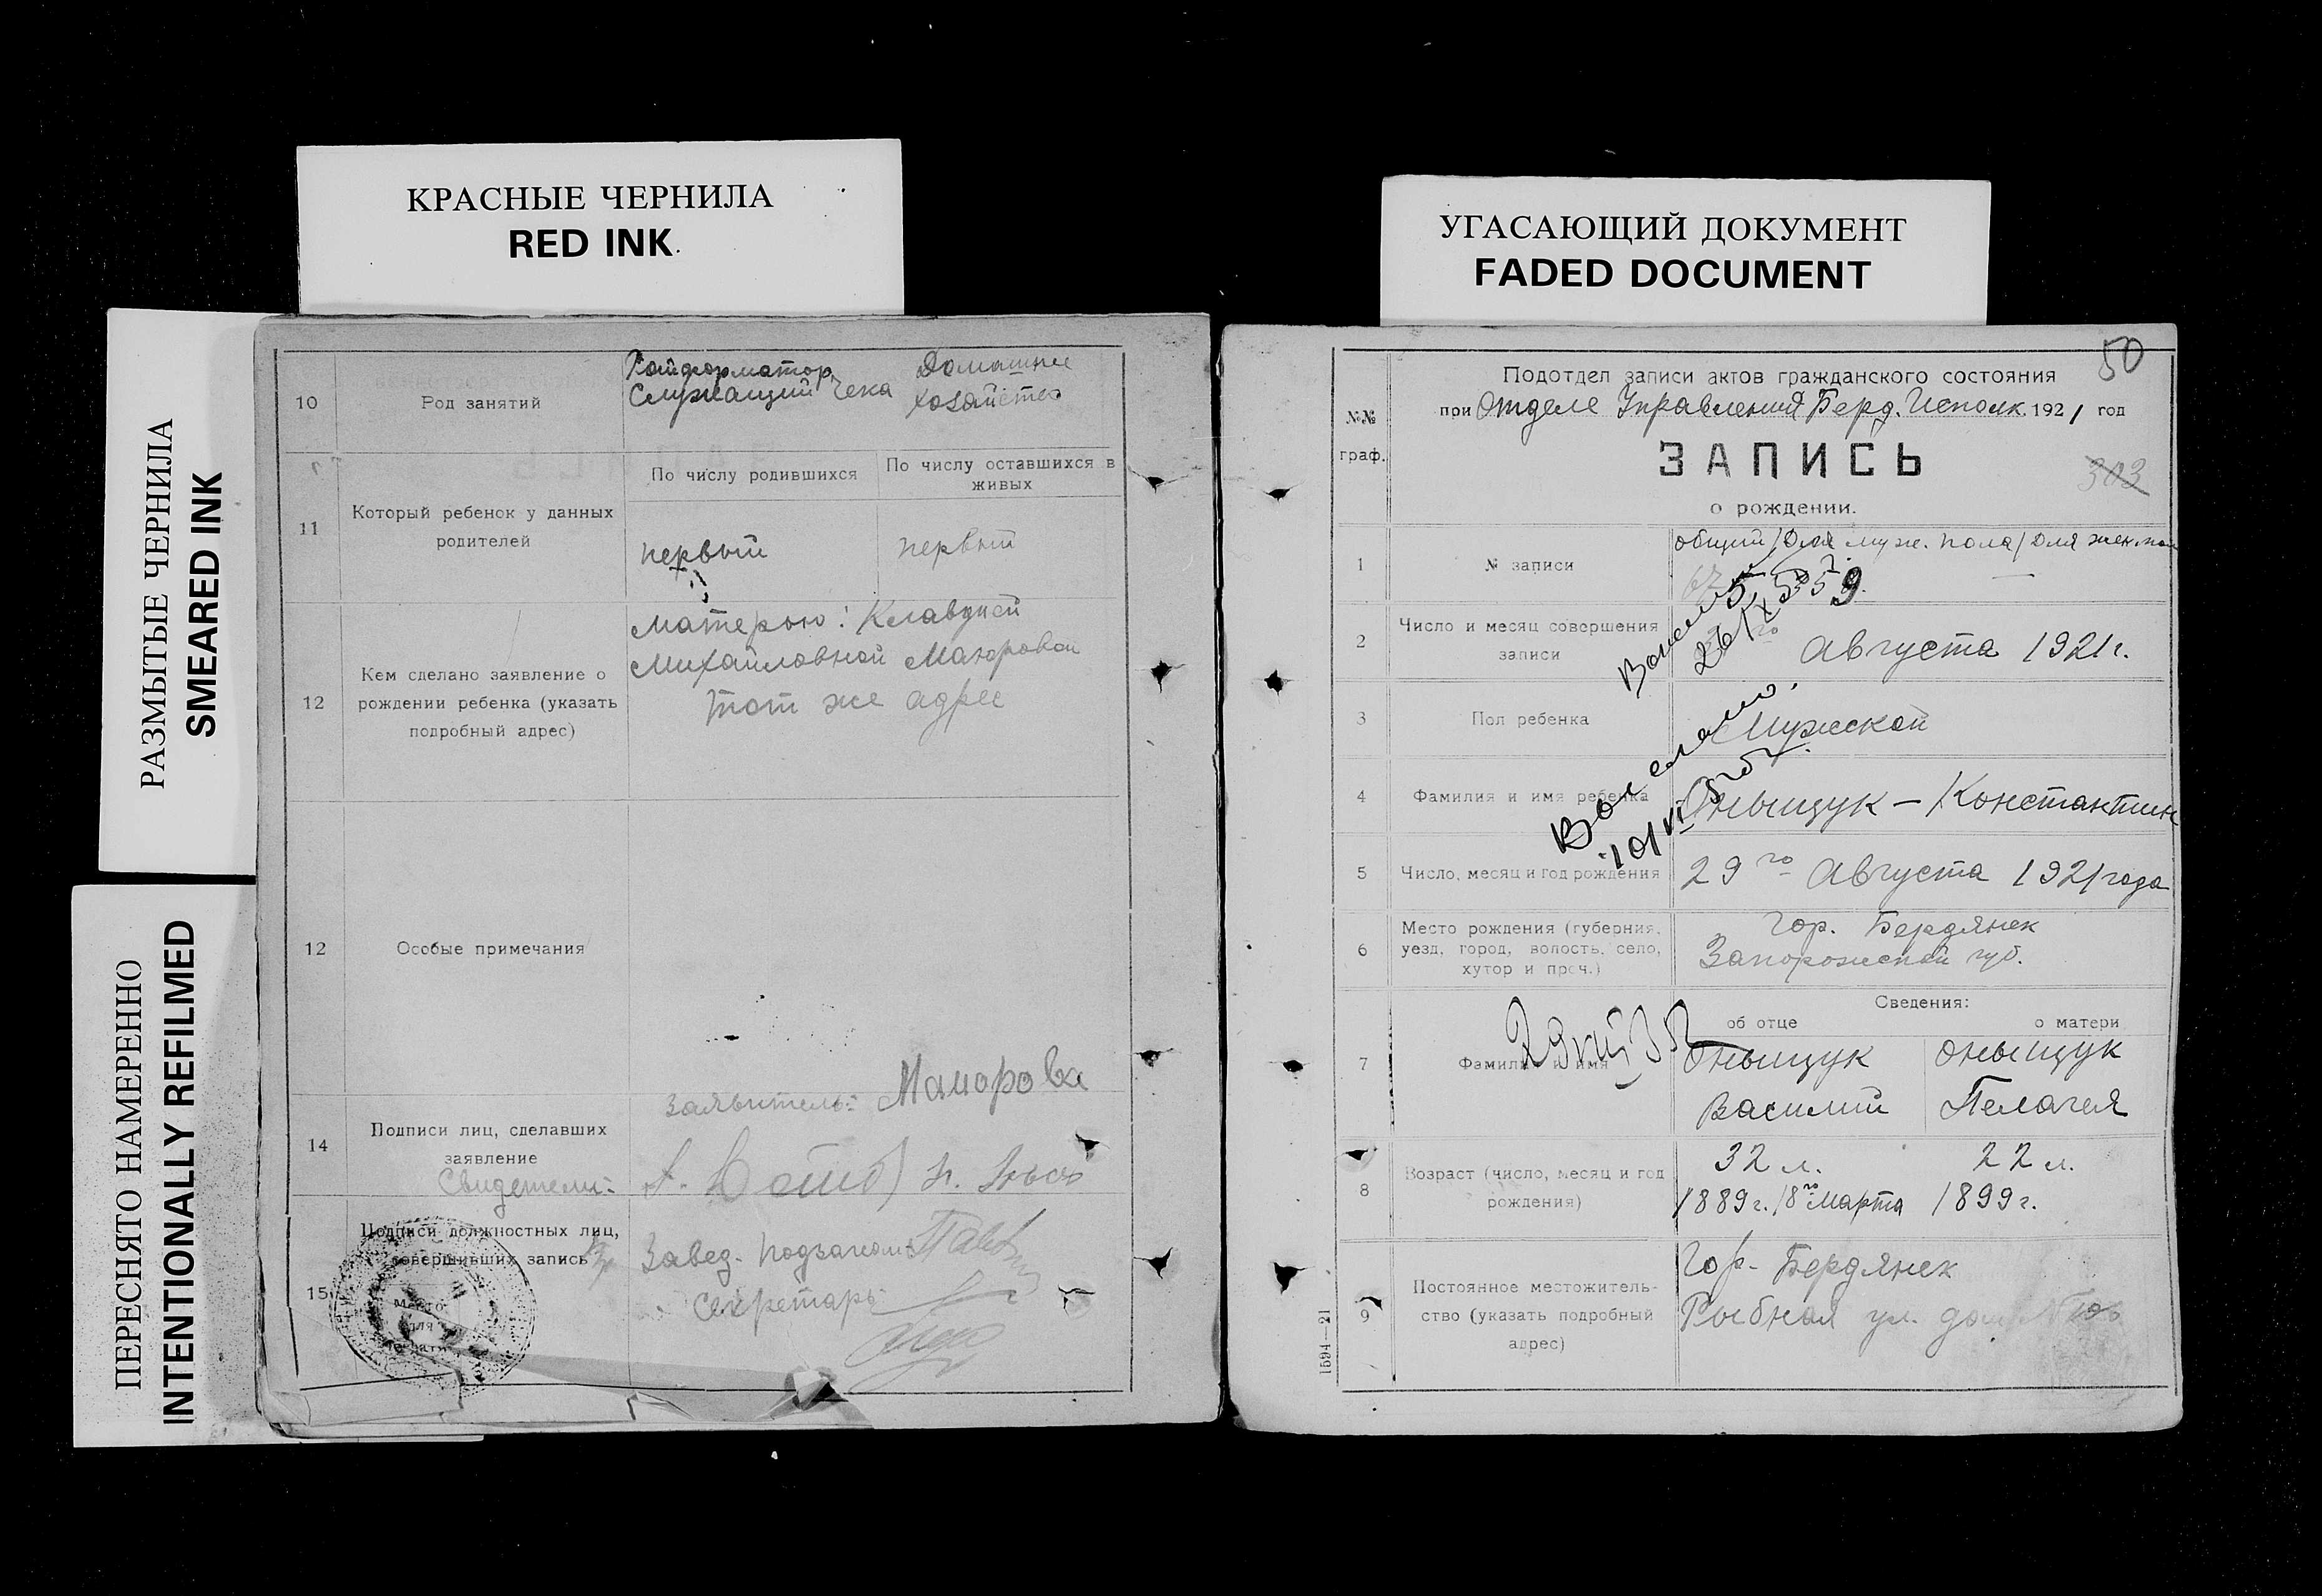 КРАСНЫЕ ЧЕРНИЛА
RED INK
УГАСАЮЩИЙ ДОКУМЕНТ
FADED DOCUMENT
РАЗМЫТЫЕ ЧЕРНИЛА
SMEARED INK
ПЕРЕСНЯТО НАМЕРЕННО
INTENTIONALLY REFILMED
10
Род занятий
Служащий Чека
Домашнее
хозяйство
11
Который ребенок у данных
родителей
По числу родившихся
По числу оставшихся в
живых
первый
первый
12
Кем сделано заявление о
рождении ребенка (указать
подробный адрес)
матерью: Клавдией
Михайловной
тот же адрес
12
Особые примечания
14
Подписи лиц, сделавших
заявление
Свидетели:
заявитель:
15
Подписи должностных лиц,
совершивших запись
Место
для
печати
Завед.
Секретарь
50
№№
граф.
Подотдел записи актов гражданского состояния
при Отделе Управления Берд. Исполк. 1921 год
ЗАПИСЬ
303
о рождении.
1
№ записи
общий / Для муж. пола / Для жен. пол
59
2
Число и месяц совершения
записи
Августа 1921 г.
3
Пол ребенка
Мужской
4
Фамилия и имя ребенка
Оныщук – Константин
5
Число, месяц и год рождения
29го Августа 1921 года
6
Место рождения (губерния,
уезд, город, волость, село,
хутор и проч.)
Гор. Бердянск
Запорожской губ.
Сведения:
об отце
о матери
7
Фамилия и имя
Оныщук
Василий
Оныщук
Пелагея
8
Возраст (число, месяц и год
рождения)
32 л.
1889 г. / 8го Марта
22 л.
1899 г.
9
Постоянное местожитель-
ство (указать подробный
адрес)
Гор. Бердянск
Рыбная ул. дом
1594—21